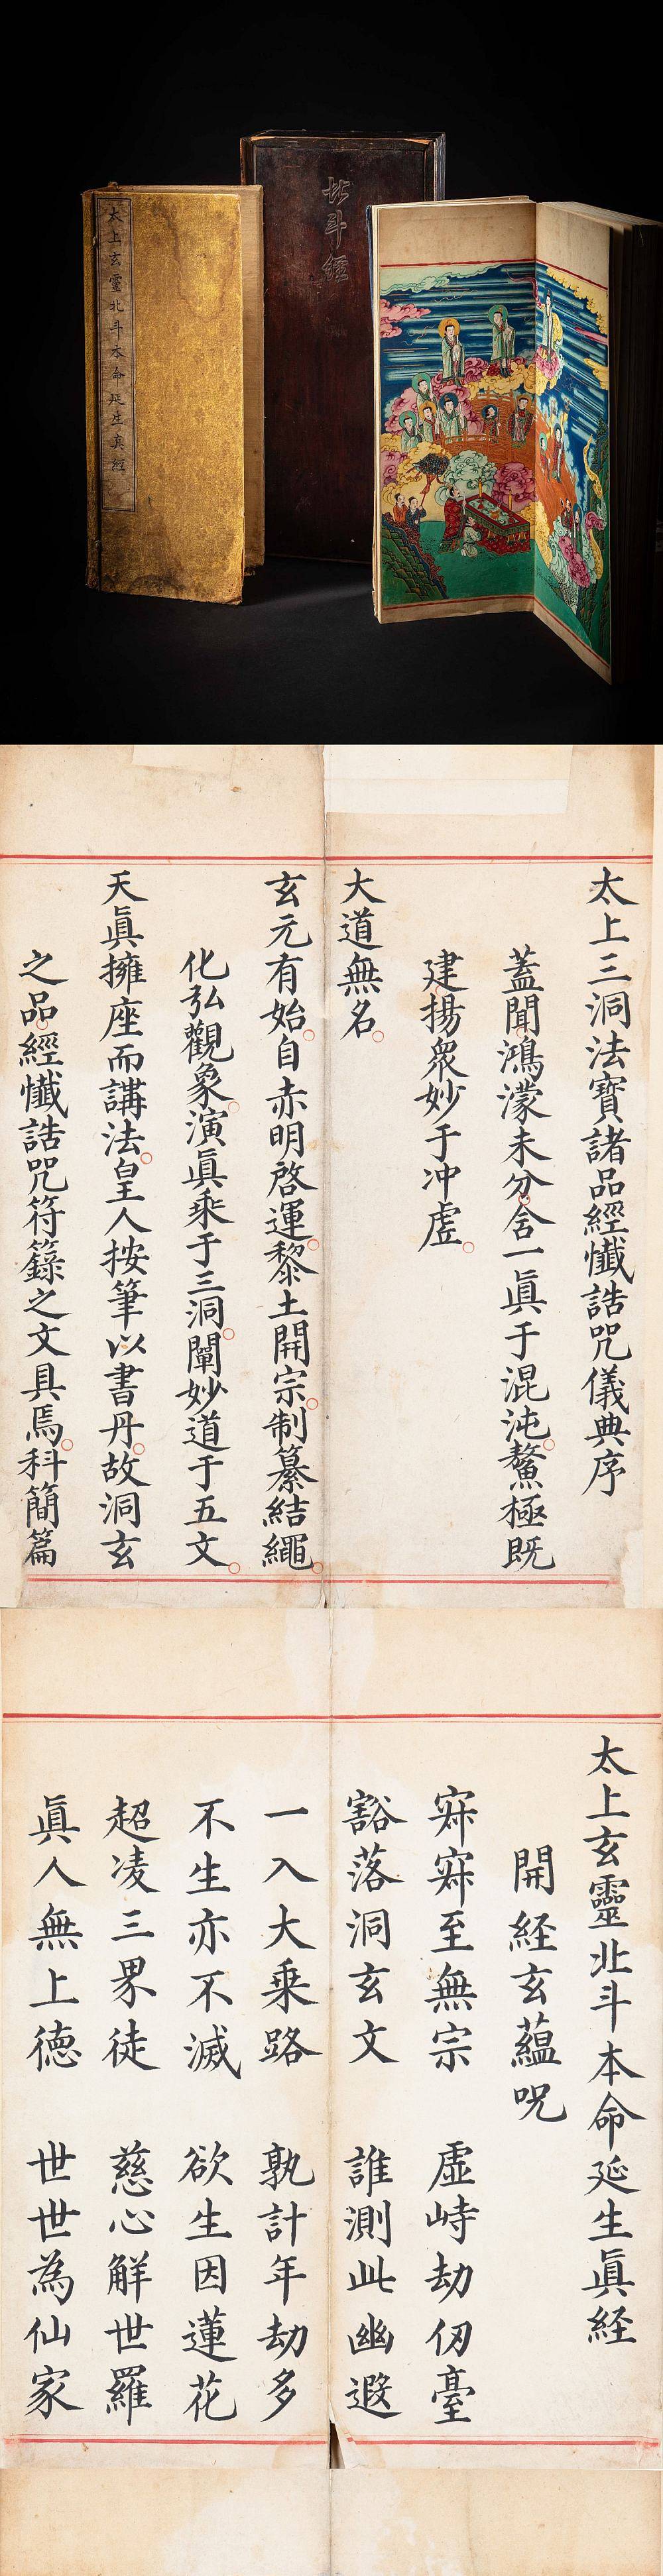 太上玄靈北斗本命延生真經
北斗經
太上三洞法寶諸品經懺誥咒儀典序
蓋聞鴻濛未分含一眞于混沌鰲極既
建揚衆妙于冲虛
大道無名
玄元有始自赤明啓運黎土開宗制纂結繩
化弘觀象演眞乘于三洞闡妙道于五文
天眞擁座而講法皇人按筆以書丹故洞玄
之品經懺誥咒符籙之文具焉科簡篇
太上玄靈北斗本命延生眞経
開経玄蘊咒
寂寂至無宗 虛峙劫仞臺
豁落洞玄文 誰測此幽遐
一入大乘路 孰計年劫多
不生亦不滅 欲生因蓮花
超凌三界徒 慈心觧世羅
眞人無上德 世世為仙家